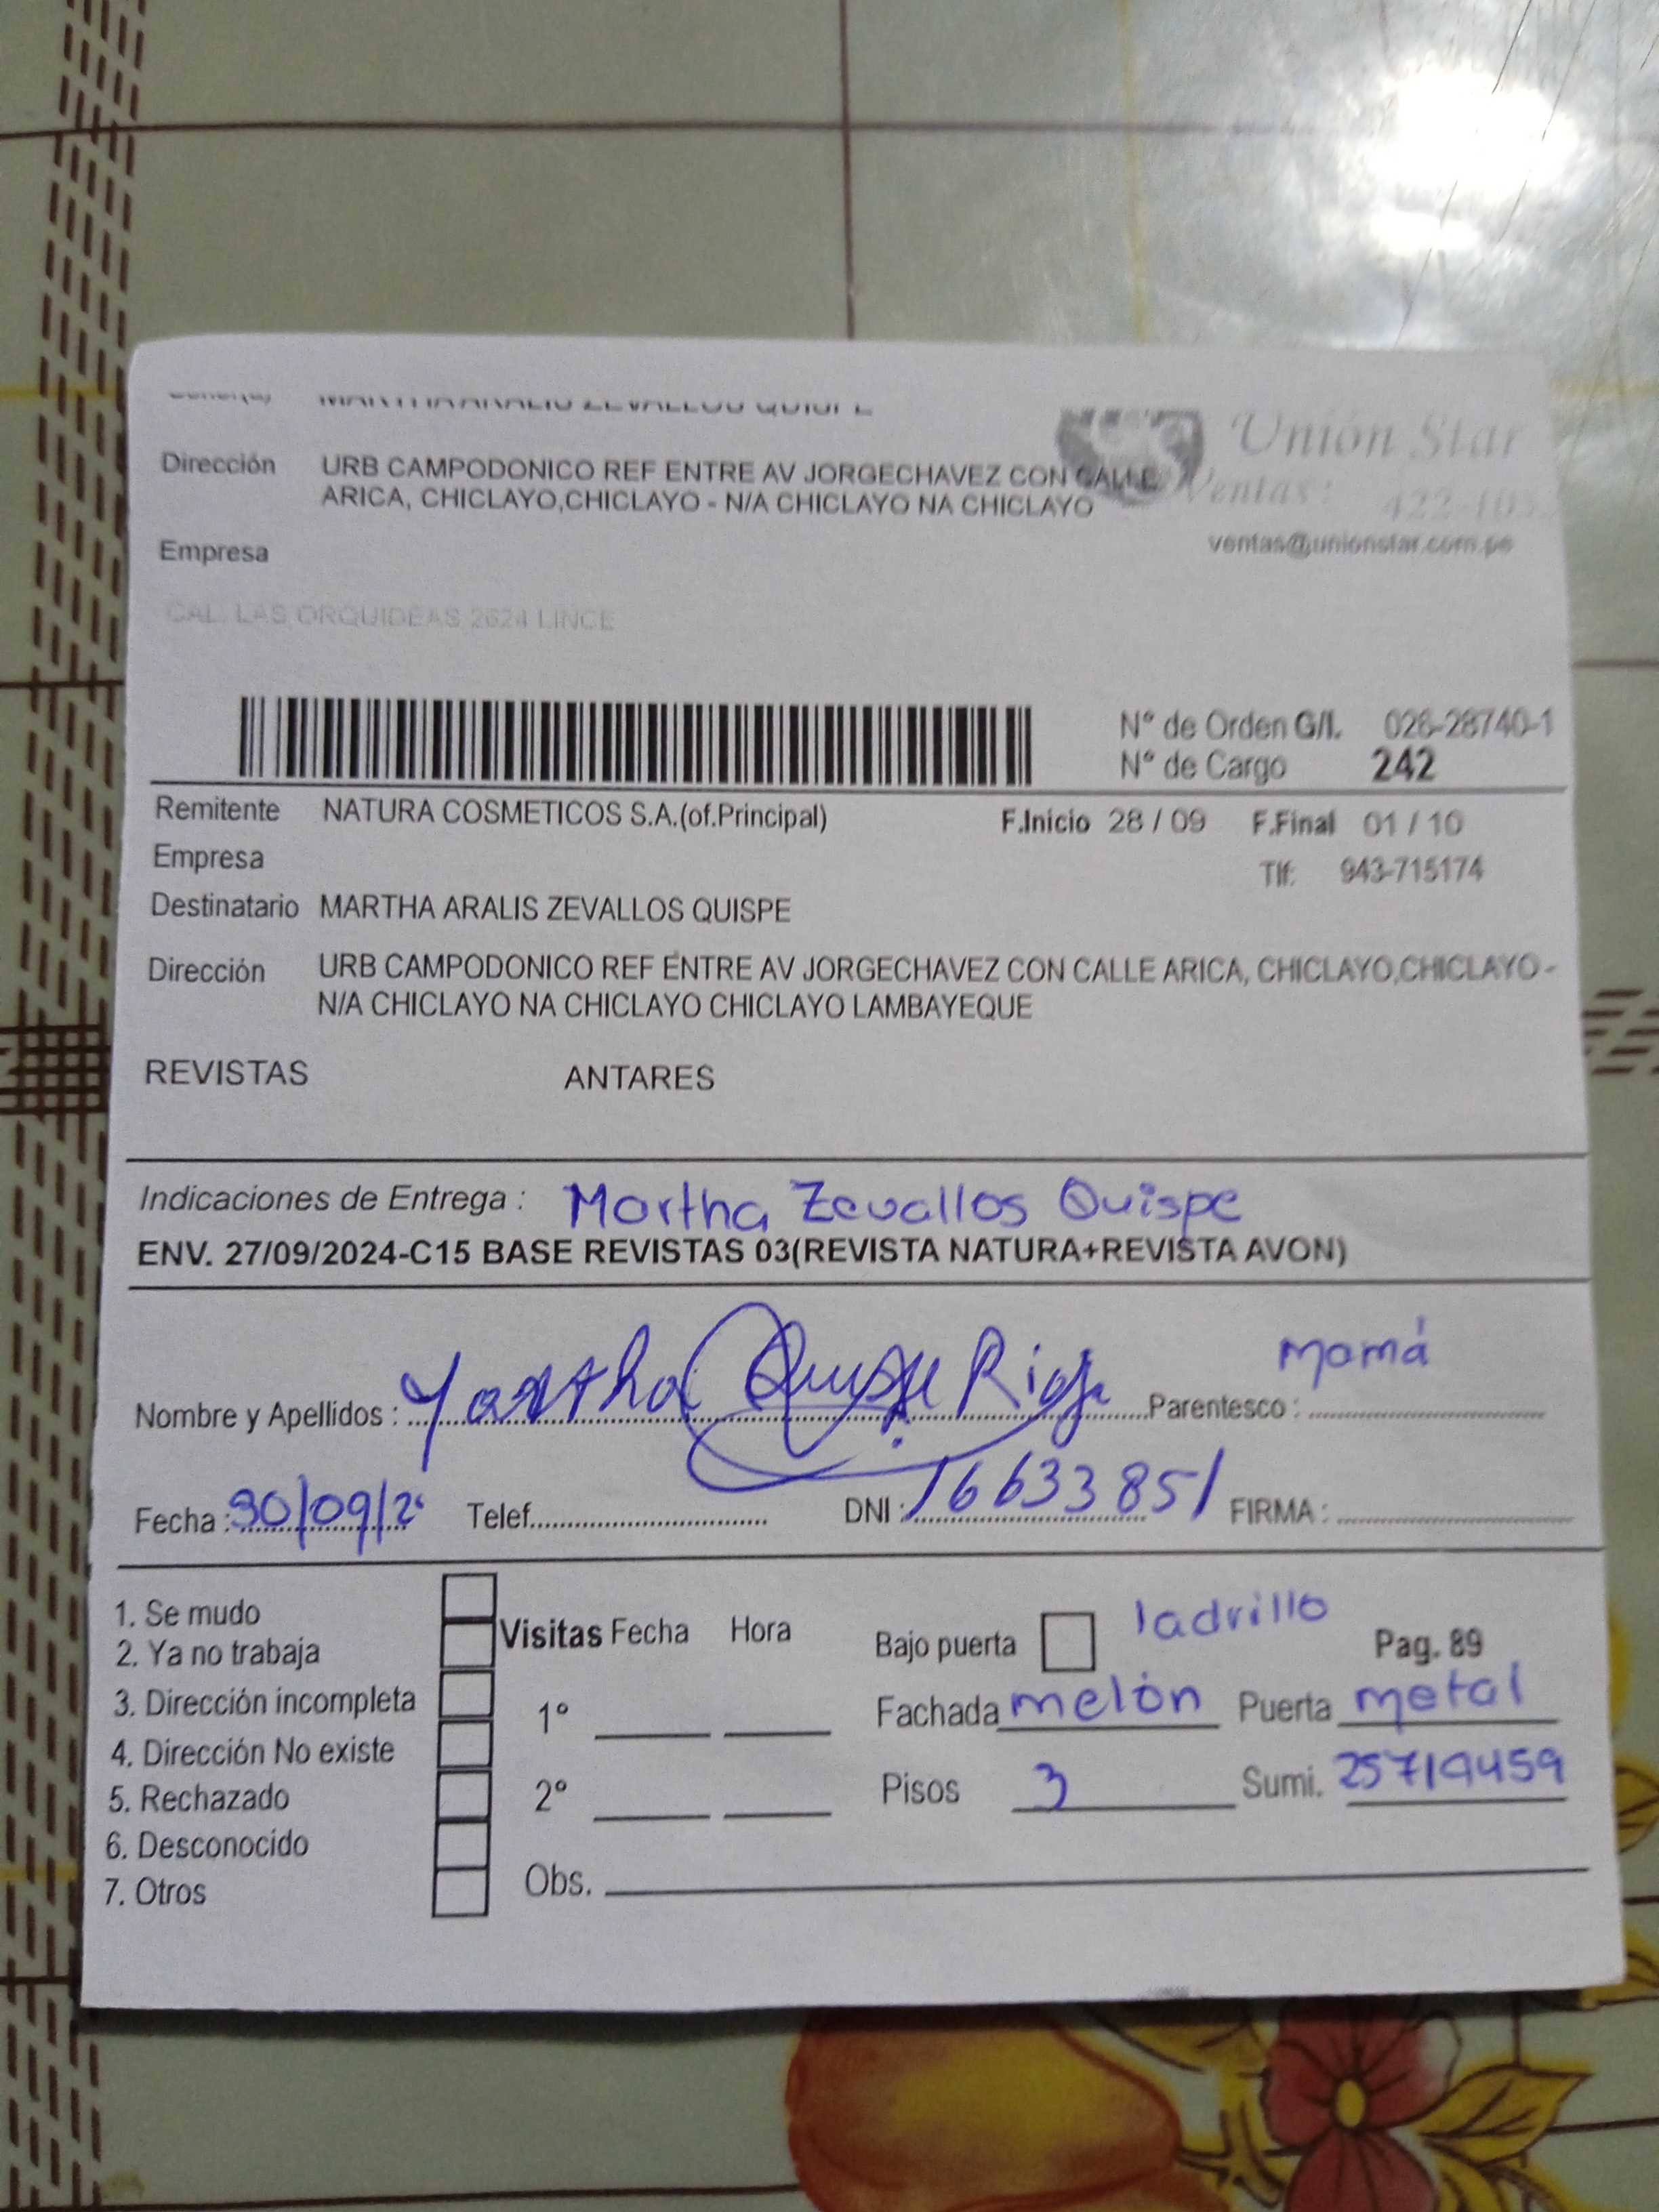 MARTHA ARALIS ZEVALLOS QUISPE
Unión Star
Dirección URB CAMPODONICO REF ENTRE AV JORGECHAVEZ CON CALLE
ARICA, CHICLAYO,CHICLAYO - N/A CHICLAYO NA CHICLAYO
Ventas:
ventas@unionstar.com.pe
Empresa
CAL. LAS ORQUIDEAS 2624 LINCE
N° de Orden G/I. 026-28740-1
N° de Cargo 242
Remitente NATURA COSMETICOS S.A.(of.Principal) F.Inicio 28 / 09 F.Final 01 / 10
Empresa Tlf: 943-715174
Destinatario MARTHA ARALIS ZEVALLOS QUISPE
Dirección URB CAMPODONICO REF ENTRE AV JORGECHAVEZ CON CALLE ARICA, CHICLAYO,CHICLAYO -
N/A CHICLAYO NA CHICLAYO CHICLAYO LAMBAYEQUE
REVISTAS ANTARES
Indicaciones de Entrega : Martha Zevallos Quispe
ENV. 27/09/2024-C15 BASE REVISTAS 03(REVISTA NATURA+REVISTA AVON)
Nombre y Apellidos : Martha Quispe Parentesco : Mamá
Fecha : 30/09/2 Telef. DNI : 16633851 FIRMA :
1. Se mudo
2. Ya no trabaja
3. Dirección incompleta
4. Dirección No existe
5. Rechazado
6. Desconocido
7. Otros
Visitas Fecha Hora
1°
2°
Obs.
Bajo puerta ladrillo Pag. 89
Fachada melón Puerta metal
Pisos 3 Sumi. 25719459